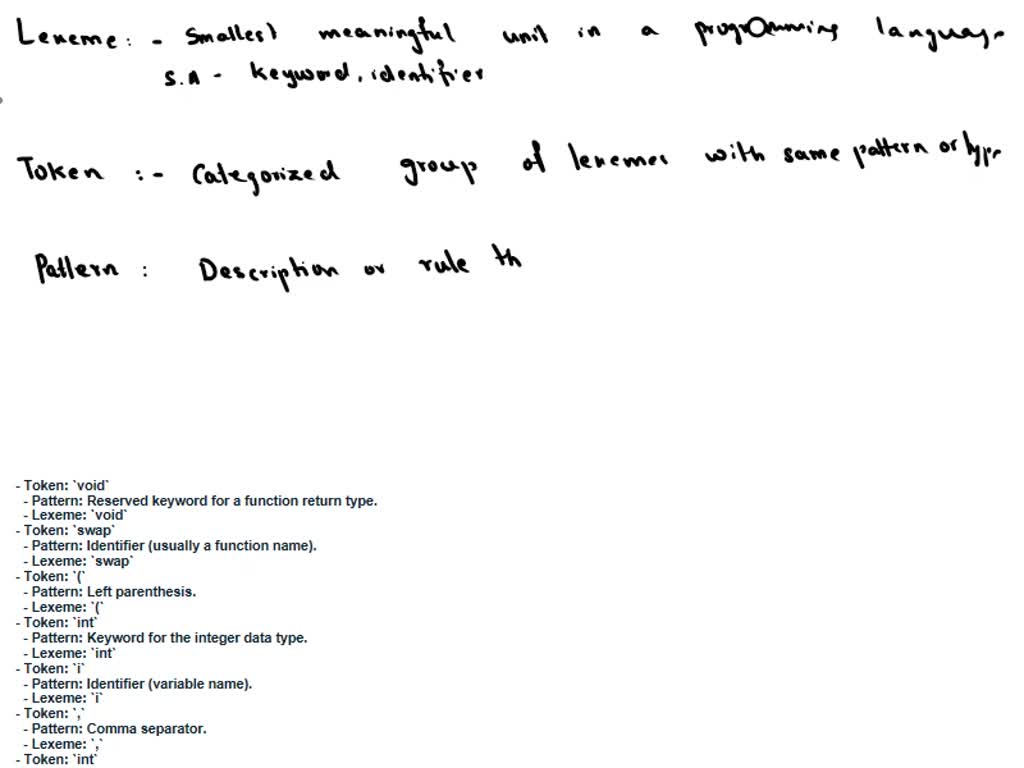 Lexeme : - Smallest meaningful unit in a programming language.
S.A - keyword, identifier
Token :- Categorized group of lexemes with same pattern or type
Pattern : Description or rule th
- Token: `void`
- Pattern: Reserved keyword for a function return type.
- Lexeme: `void`
- Token: `swap`
- Pattern: Identifier (usually a function name).
- Lexeme: `swap`
- Token: `(`
- Pattern: Left parenthesis.
- Lexeme: `(`
- Token: `int`
- Pattern: Keyword for the integer data type.
- Lexeme: `int`
- Token: `i`
- Pattern: Identifier (variable name).
- Lexeme: `i`
- Token: `,`
- Pattern: Comma separator.
- Lexeme: `,`
- Token: `int`